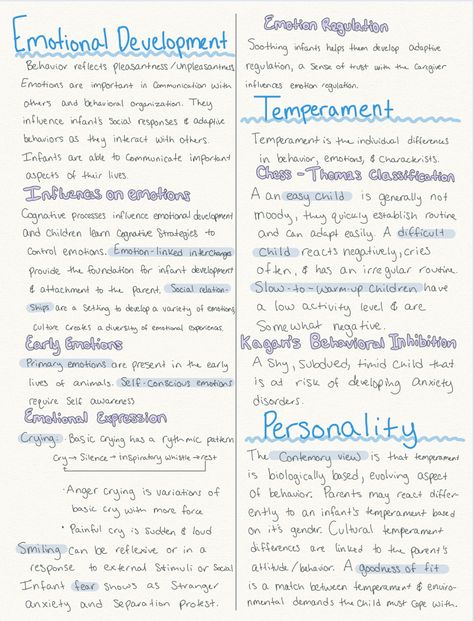 Emotional Development
Behavior reflects pleasantness/unpleasantness
Emotions are important in communication with
others and behavioral organization. They
influence infant's social responses & adaptive
behaviors as they interact with others.
Infants are able to communicate important
aspects of their lives.
Influences on emotions
Cognative processes influence emotional development
and Children learn Cognative Strategies to
control emotions. Emotion-linked interchanges
provide the foundation for infant development
& attachment to the parent. Social relation-
ships are a setting to develop a variety of emotions
Culture creates a diversity of emotional experiences.
Early Emotions
Primary emotions are present in the early
lives of animals. Self-Conscious emotions
require Self awareness
Emotional Expression
Crying: · Basic crying has a rythmic pattern
Cry → Silence → inspiratory whistle → rest
· Anger crying is variations of
basic cry with more force
· Painful cry is sudden & loud
Smiling can be reflexive or in a
response to external stimuli or social
Infant fear shows as Stranger
anxiety and Separation protest.
Emotion Regulation
Soothing infants helps them develop adaptive
regulation, a sense of trust with the caregiver
influences emotion regulation.
Temperament
Temperament is the individual differences
in behavior, emotions, & characterists.
Chess-Thomas Classification
A an easy child is generally not
moody, they quickly establish routine
and can adapt easily. A difficult
Child reacts negatively, cries
often, & has an irregular routine.
Slow-to-warm-up children have
a low activity level & are
Somewhat negative.
Kagan's Behavioral Inhibition
A Shy, Subdued, timid Child that
is at risk of developing anxiety
disorders.
Personality
The Contemory view is that temperament
is biologically based, evolving aspect
of behavior. Parents may react differ-
ently to an infant's temperament based
on it's gender. Cultural temperament
differences are linked to the parent's
attitude/behavior. A goodness of fit
is a match between temperament & enviro-
nmental demands the Child must cope with.